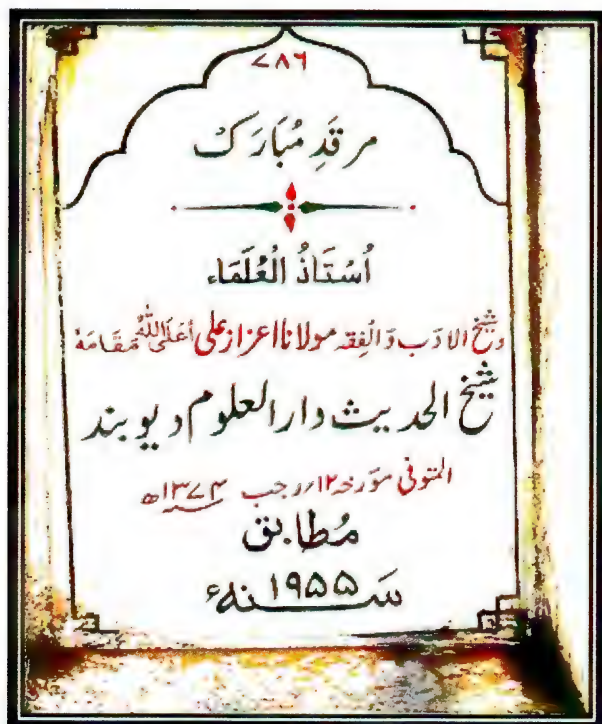 ۷۸۶
مرقدِ مُبَارَک
اُسْتَاذُ الْعُلَمَاء
وشیخ الادَب وَالْفِقہ مولانا اعزاز علی أعلَی اللّٰہُ مَقَامَہٗ
شیخ الحدیث دار العلوم دیوبند
المتوفی مؤرخہ ۱۲/رجب ۱۳۷۴ھ
مُطابق
سَنہ ۱۹۵۵ء